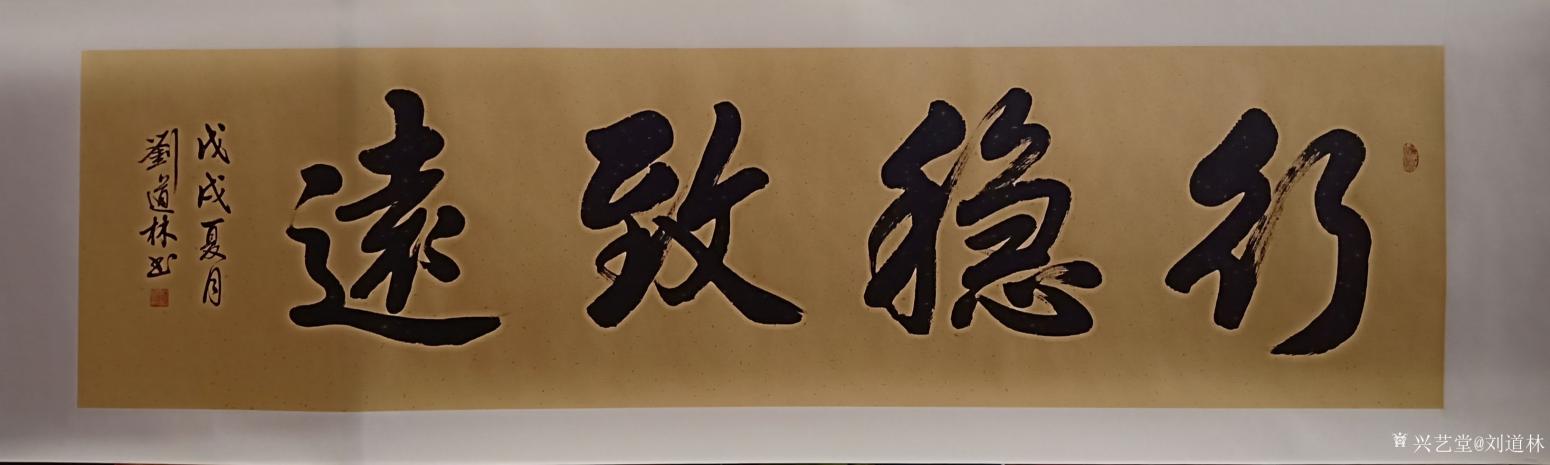 行稳致遠
戊戌夏月
劉道林书
兴艺堂@刘道林